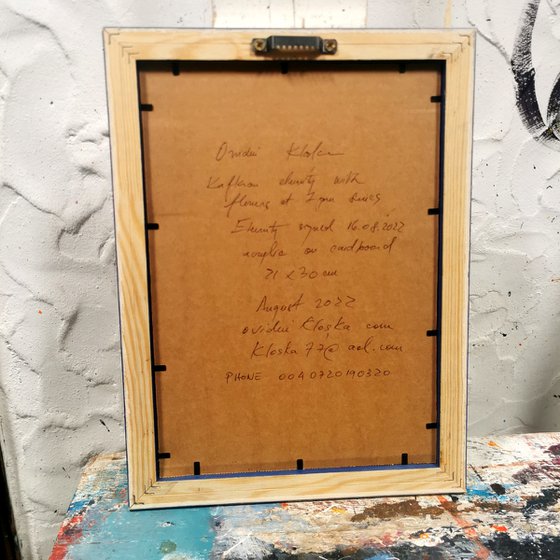 Ovidiu Kloska
Kafkian eternity with
flowers at 7 pm series
Eternity signed 16.08.2022
acrylic on cardboard
21 x 30 cm
August 2022
ovidiu kloska com
kloska77@aol.com
PHONE 0040720190320